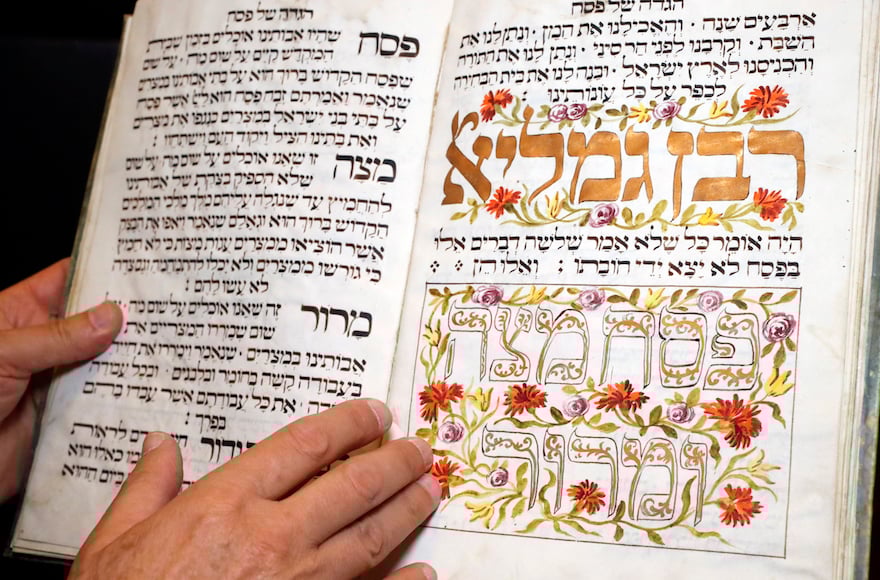 הגדה של פסח
ארבעים שנה · והאכילנו את המן · ונתן לנו את
השבת · וקרבנו לפני הר סיני · ונתן לנו את התורה
והכניסנו לארץ ישראל · ובנה לנו את בית הבחירה
לכפר על כל עונותינו :
רבן גמליאל
היה אומר כל שלא אמר שלשה דברים אלו
בפסח לא יצא ידי חובתו : ואלו הן :
פסח מצה
ומרור
הגדה של פסח
פסח שהיו אבותינו אוכלים בזמן שבית
המקדש קים על שום מה · על שום
שפסח הקדוש ברוך הוא על בתי אבותינו במצרים
שנאמר ואמרתם זבח פסח הוא ליי אשר פסח
על בתי בני ישראל במצרים בנגפו את מצרים
ואת בתינו הציל ויקוד העם וישתחוו :
מצה זו שאנו אוכלים על שום מה · על שום
שלא הספיק בצקת של אבותינו
להחמיץ עד שנגלה עליהם מלך מלכי המלכים
הקדוש ברוך הוא וגאלם שנאמר ויאפו את הבצק
אשר הוציאו ממצרים עגות מצות כי לא חמץ
כי גורשו ממצרים ולא יכלו להתמהמה וגם צדה
לא עשו להם :
מרור זה שאנו אוכלים על שום מה · על
שום שמררו המצריים את
אבותינו במצרים · שנאמר וימררו את חייהם
בעבודה קשה בחומר ובלבנים · ובכל עבודה
את כל עבודתם אשר עבדו בהם
בפרך :
ודור לראות
כאלו הוא
ביום ההוא